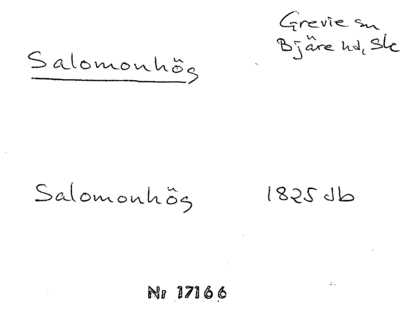 Grevie sn
Bjäre hd, Sk
Salomonhög
Salomonhög 1825 db
Nr 17166